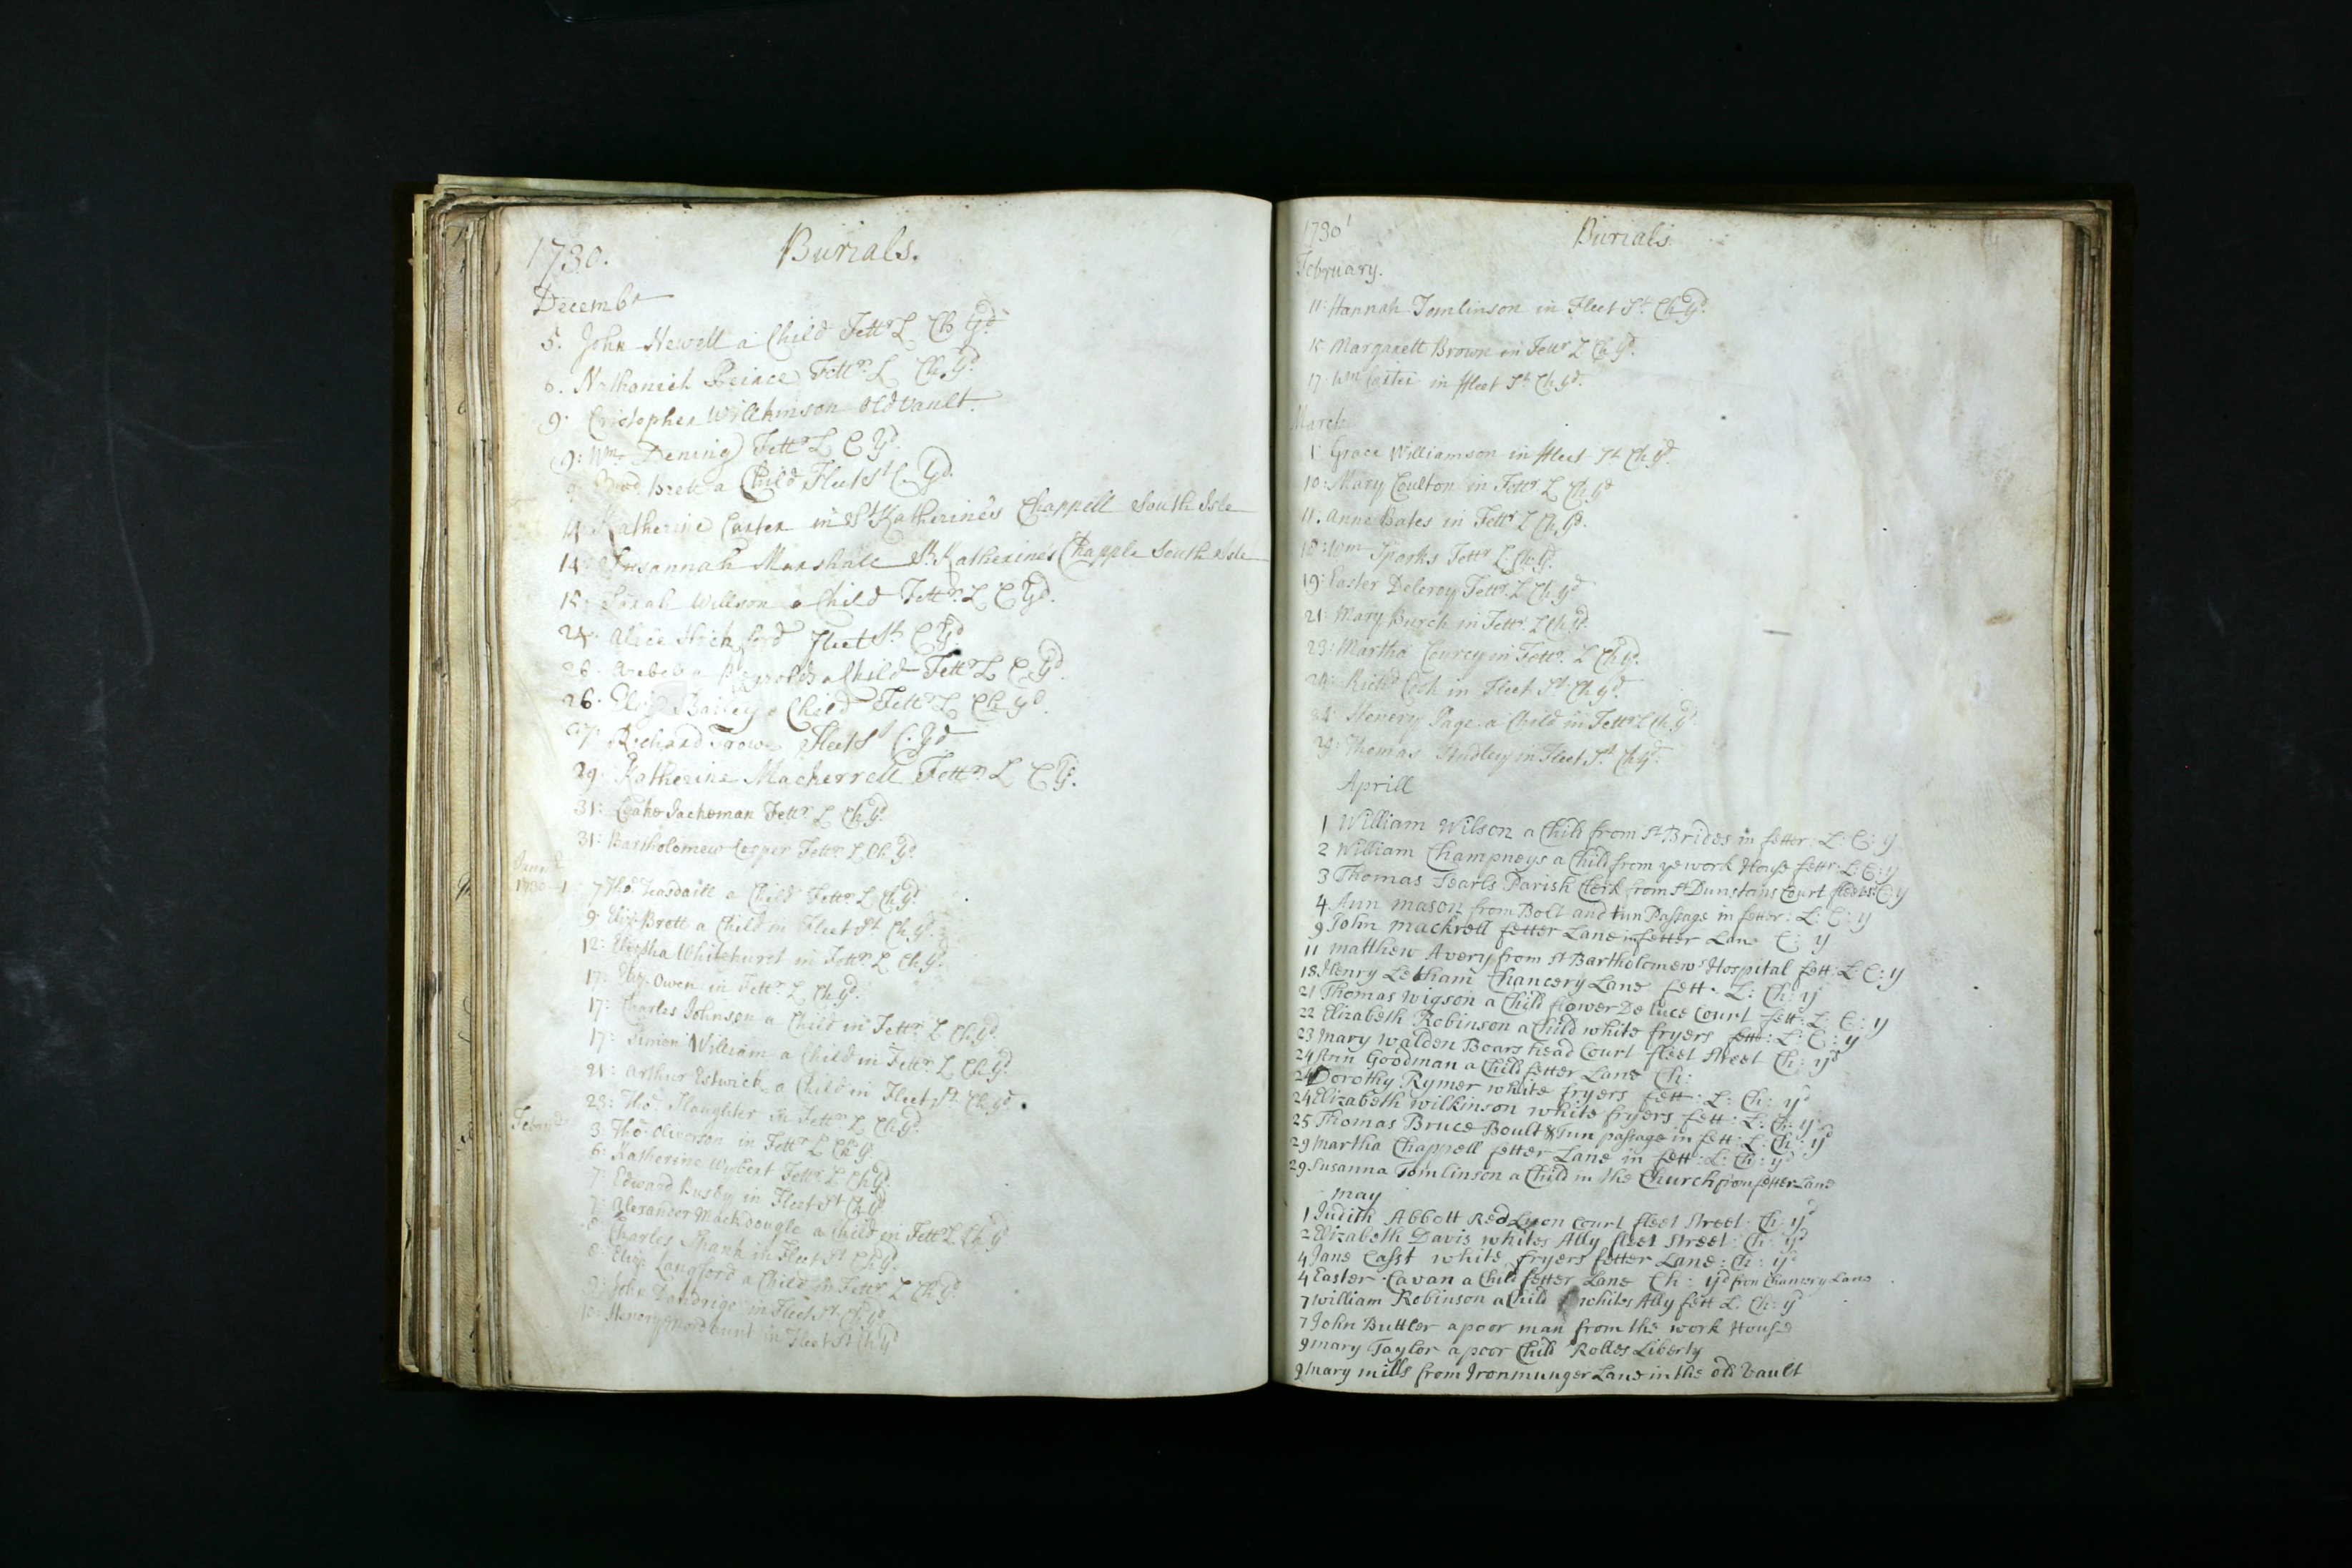 1730.
Burials.
Decembr
5. John Newell a Child Fettr L Ch Yd
8. Nathaniel Prince Fettr. L Ch. Yd
9. Cristopher Willkinson Old Vault.
9: Wm. Dening Fettr L C Yd
9 Brett a Child Fleet St C. Yd
14 Katherine Carter in St Katherine's Chappell South Isle
14: Susannah Marshall St. Katherine's Chapple South Isle
15: Sarah Willson a Child Fettr. L C Yd.
24. Alice Hickford Fleet St C Yd
26. Arabella Reynolds a Child Fettr L C Yd
26. Eliz Bailey a Child Fettr L Ch yd
27: Richard Trowe Fleet St C. Yd
29. Katherine Macherrell Fettr. L C Yd.
31: Jackeman Fettr L Ch Yd
31: Bartholomew Copper Fettr. L Ch Yd.
1730-1
7 Tho Teasdaill a Child Fettr. L Ch Yd.
9: Eliz Brott a Child in Fleet St Ch Yd.
12: Whitehurst in Fettr. L Ch Yd.
17: Eliz. Owen in Fettr. L Ch yd.
17: Charles Johnson a Child in Fettr. L Ch Yd.
17: Simon William a Child in Fettr. L Ch Yd.
21: Arthur Estwick a Child in Fleet St. Ch Yd.
23: Tho. Slaughter in Fettr. L Ch Yd.
3: Tho. Oliverson in Fettr L Ch Yd
6: Katherine Wybert Fettr. L Ch Yd.
7: Edward Busby in Fleet St Ch Yd
7: Alexander Mackdougle a Child in Fettr L Ch Yd
8: Charles Shank in Fleet St Ch Yd.
8: Eliz. Langford a Child in Fettr L Ch Yd.
9: John Dandrige in Fleet St. Ch Yd
10: Henery Mordaunt in Fleet St Ch Yd
1730 1
Burials
February.
11: Hannah Tomlinson in Fleet St. Ch Yd.
15 Margarett Brown in Fettr L Ch Yd.
17: Wm in Fleet St. Ch Yd.
March
1: Grace Williamson in Fleet St Ch Yd.
10: Mary Coulton in Fettr. L Ch Yd
11. Anne Bates in Fettr L Ch. Yd.
18: Wm Sparks Fettr L. Ch. Yd.
19: Easter Deleroy Fettr. L Ch Yd
21: Mary Burch in Fettr. L Ch Yd.
23: Martha Courcy in Fettr. L Ch Yd.
24: Richd in Fleet St. Ch Yd.
24: Henery Page a Child in Fettr L Ch Yd.
29: Thomas Studley in Fleet St. Ch Yd.
Aprill
1 William Wilson a Child from St Brides in fetter: L: C: y
2 William Champneys a Child from ye work House fettr: L: C: y
3 Thomas Searls Parish Clerk from St Dunstans Court fleet St: C: y
4 Ann mason from Bolt and tun Passage in fetter: L: C: y
9 John mackrell fetter Lane in fetter Lane C: y
11 matthew Avery from St Bartholomews Hospital fett: L: C: y
18 Henry Letham Chancery Lane fett. L: Ch: y
21 Thomas Wigson a Child flower De luce Court fett: L: C: y
22 Elizabeth Robinson a Child white fryers fett: L: C: y
23 mary walden Boars head Court fleet Street Ch: yd
24 Ann Goodman a Child fetter Lane Ch:
24 Dorothy Rymer white fryers fett: L: Ch: yd
24 Elizabeth wilkinson white fryers fett: L: Ch: yd
25 Thomas Bruce Boult & Tun passage in fett: L: Ch: yd
29 martha Chappell fetter Lane in fett: L: Ch: yd
29 Susanna Tomlinson a Child in the Church from fetter Lane
may
1 Judith Abbott Red Lyon Court fleet Street: Ch: yd
2 Elizabeth Davis whites Ally fleet Street: Ch: yd
4 Jane Casst white fryers fetter Lane: Ch: yd
4 Easter Cavan a Child fetter Lane Ch: yd from Chancery Lane
7 William Robinson a Child whites Ally fett L: Ch: yd
7 John Buttler a poor man from the work House
9 mary Taylor a poor Child Rolles Liberty
9 mary mills from Ironmunger Lane in the old Vault